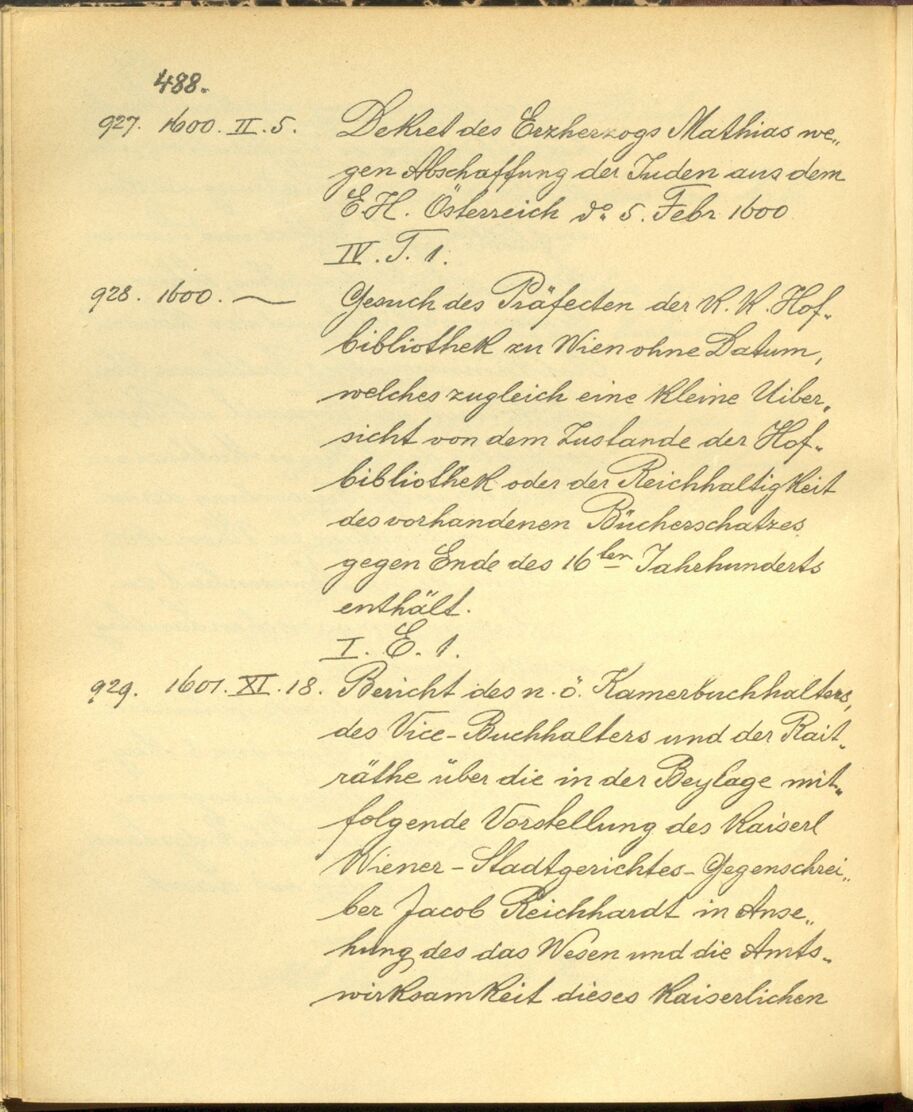 488.
927. 1600. II. 5. Dekret des Erzherzogs Mathias we„
gen Abschaffung der Juden aus dem
E.H. Österreich do 5. Febr 1600
IV. T. 1.
928. 1600. — Gesuch des Präfecten der K. K. Hof„
bibliothek zu Wien ohne Datum,
welches zugleich eine kleine Uiber„
sicht von dem Zustande der Hof„
bibliothek oder der Reichhaltigkeit
des vorhandenen Bücherschatzes
gegen Ende des 16ten Jahrhunderts
enthält.
I. E. 1.
929. 1601. XI. 18. Bericht des n. ö. Kamerbuchhalters,
des Vice-Buchhalters und der Rait„
räthe über die in der Beylage mit„
folgende Vorstellung des Kaiserl
Wiener-Stadtgerichtes-Gegenschrei„
ber Jacob Reichhardt in Anse„
hung des das Wesen und die Amts„
wirksamkeit dieses Kaiserlichen